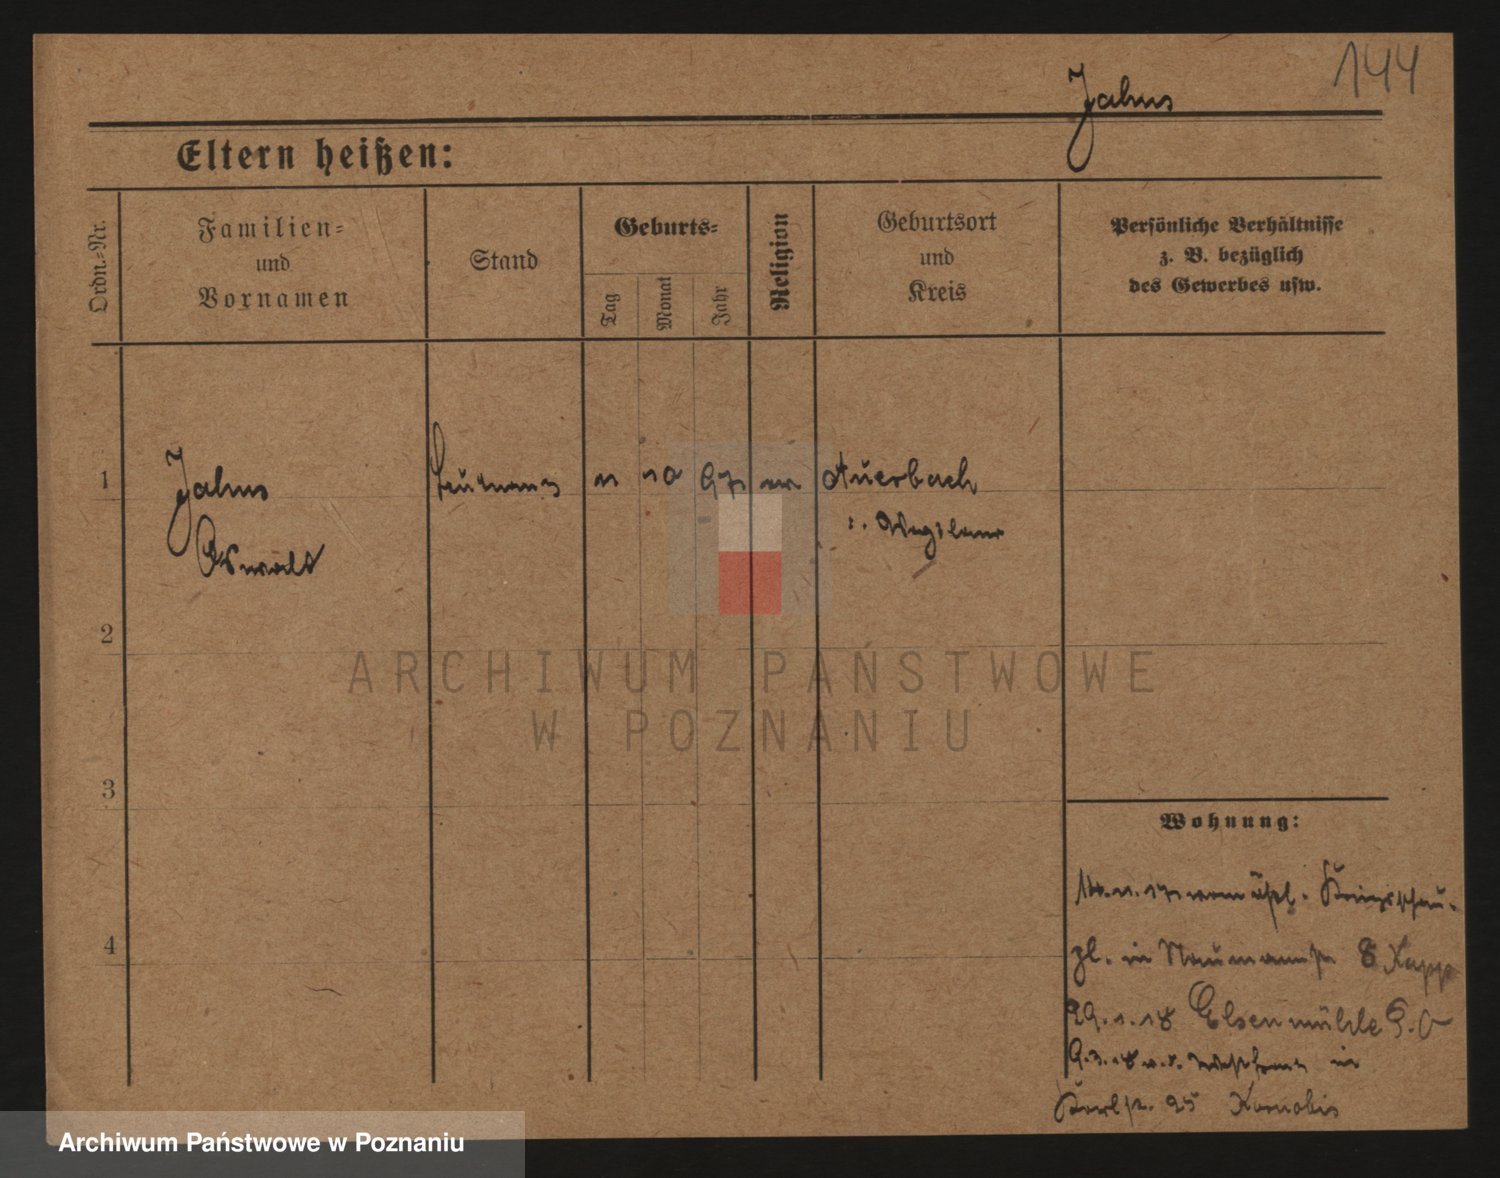 144
Jahns
Eltern heißen:
Ordn.-Nr.
Familien-
und
Vornamen
Stand
Geburts-
Tag
Monat
Jahr
Religion
Geburtsort
und
Kreis
Persönliche Verhältnisse
z. B. bezüglich
des Gewerbes usw.
1
Jahns
Oswald
Leutnant
10
Auerbach
2
3
4
Wohnung:
vom östl. Kriegsschau-
pl. in Naumannstr 8 Kapp
29.1.18 Elsenmühle
in
Karlstr. 25
ARCHIWUM PAŃSTWOWE
W POZNANIU
Archiwum Państwowe w Poznaniu